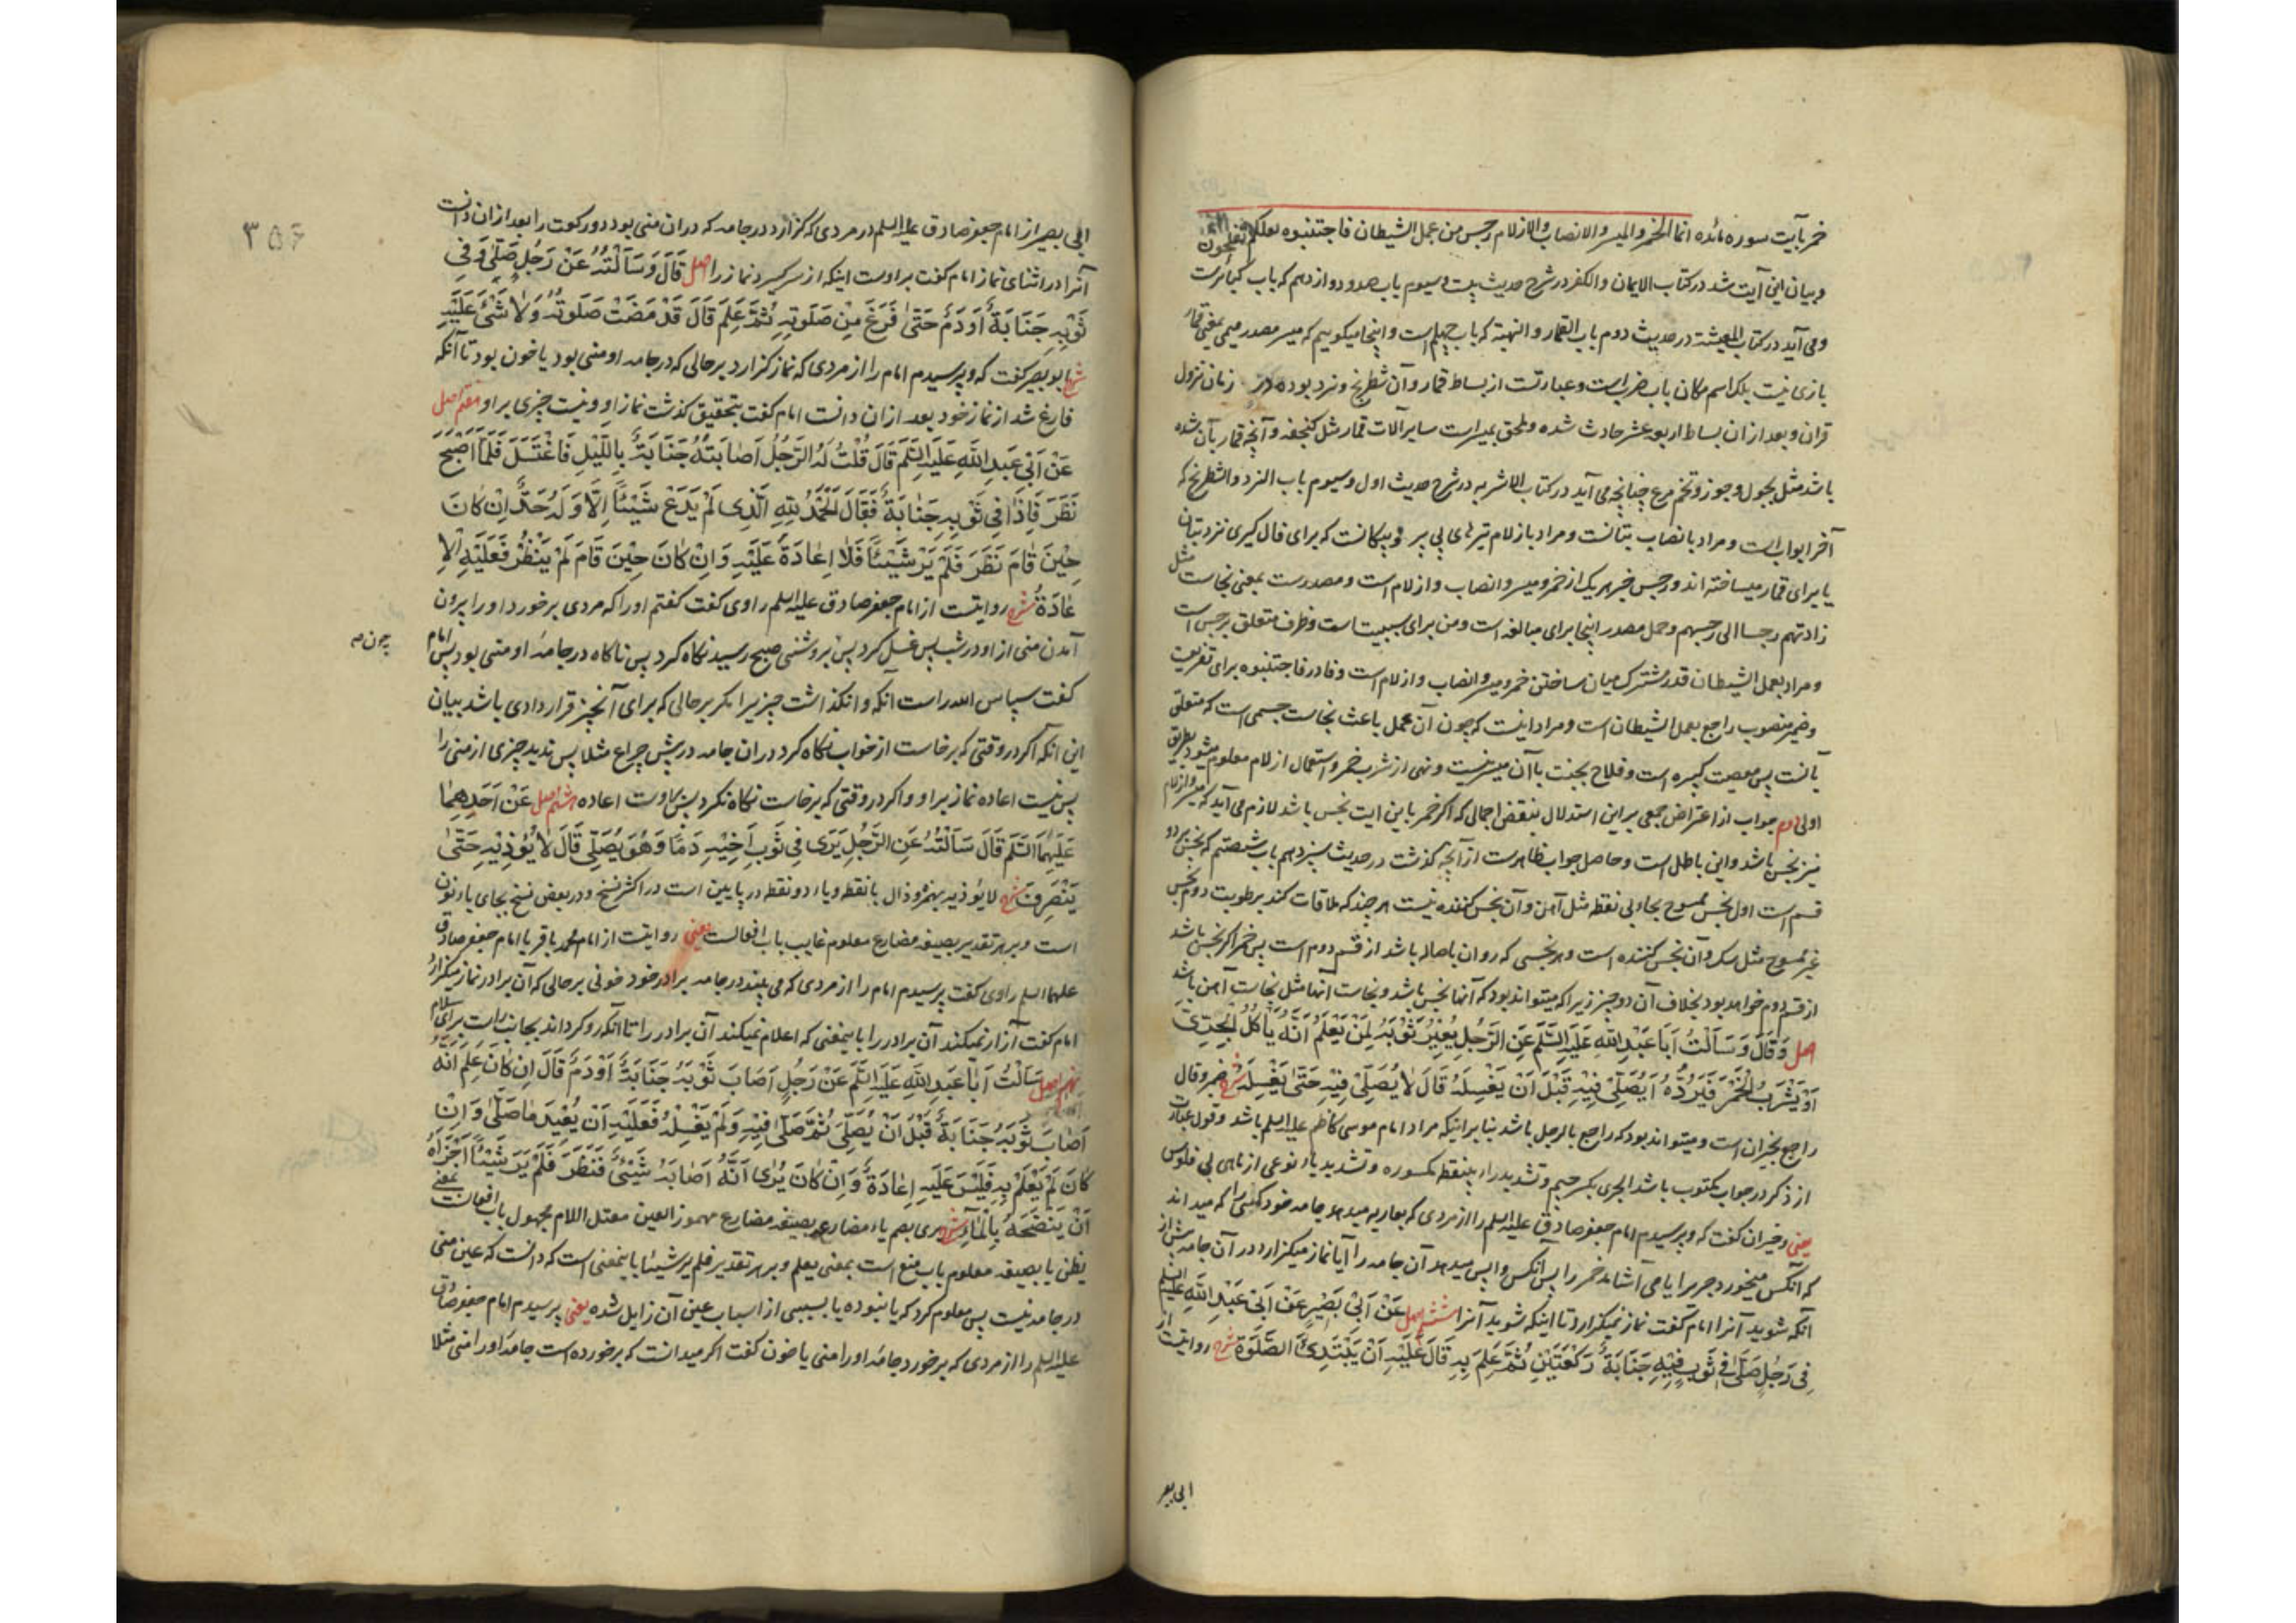 خمر بآیت سوره مائده انما الخمر والمیسر والانصاب والازلام رجس من عمل الشیطان فاجتنبوه لعلکم تفلحون
و بیان این آیت شد در کتاب الایمان والکفر در شرح حدیث بیست و سیوم باب صد و دوازدهم که باب کبائرست
و می آید در کتاب المعیشة در حدیث دوم باب القمار والنهبة که باب چهلم است و اینجا میکوییم که میسر مصدر میمی بمعنی قمار
بازی نیست بلکه اسم مکان باب ضرب است و عبارتست از بساط قمار و آن شطرنج و نرد بوده در زمان نزول
قران و بعد از ان بساط اربعه عشر حادث شده و ملحق بمیسر است سایر آلات قمار مثل کنجفه و آنچه قمار بآن شده
باشد مثل بجول و جوز و تخم مرغ چنانچه می آید در کتاب الاشربه در شرح حدیث اول و سیوم باب النرد والشطرنج که
آخر ابواب است و مراد بانصاب بتانست و مراد بازلام تیرهای بی پر و پیکانست که برای فال کیری نزد بتان
یا برای قمار میساخته اند و رجس خبر هر یک از خمر و میسر و انصاب و ازلام است و مصدرست بمعنی نجاست مثل
زادتهم رجسا الی رجسهم و حمل مصدر اینجا برای مبالغه است و من برای سببیت است و ظرف متعلق برجس است
و مراد بعمل الشیطان قدر مشترک میان ساختن خمر و میسر و انصاب و ازلام است و فا در فاجتنبوه برای تفریعست
و ضمیر منصوب راجع بعمل الشیطان است و مراد اینست که چون آن عمل باعث نجاست جسمی است که متعلق
بآنست پس معصیت کبیره است و فلاح بجنت با آن میسر نیست و نهی از شرب خمر و استعمال ازلام معلوم میشود بطریق
اولی دوم جواب از اعتراض جمعی بر این استدلال بنقض اجمالی که اکر خمر باین ایت نجس باشد لازم می آید که میسر و ازلام
نیز نجس باشد و این باطل است و حاصل جواب ظاهرست از آنچه کذشت در حدیث سیزدهم باب شصتم که نجس بر دو
قسم است اول نجس ممسوح بجاوبی نقطه مثل آهن و آن نجس کننده نیست هر چند که ملاقات کند برطوبت دوم نجس
غیر ممسوح مثل سک و آن نجس کننده است و هر نجسی که روان باصاله باشد از قسم دوم است پس خمر اکر نجس باشد
از قسم دوم خواهد بود بخلاف آن دو چیز زیرا که میتواند بود که آنها نجس باشد و نجاست آنها مثل نجاست آهن باشد
اصل وَقَالَ وَسَأَلْتُ اَبَا عَبْدِ اللهِ عَلَیْهِ السَّلَم عَنِ الرَّجُلِ یُعِیْرُ ثَوْبَهُ لِمَنْ یَعْلَمُ اَنَّهُ یَأْکُلُ الْجِرِّیَّ
اَوْ یَشْرَبُ الْخَمْرَ فَیَرُدُّهُ اَیُصَلِّیْ فِیْهِ قَبْلَ اَنْ یَغْسِلَهُ قَالَ لَا یُصَلِّیْ فِیْهِ حَتّٰی یَغْسِلَهُ شرح ضمیر و قال
راجع بخیران است و میتواند بود که راجع بالرجل باشد بنا بر اینکه مراد امام موسی کاظم علیه السلم باشد و قول عبارت
از ذکر در جواب مکتوب باشد الجری بکسر جیم و تشدید راء بینقطه مکسوره و تشدید یاء نوعی از ماهی بی فلوس
یعنی و خیران کفت که و پرسیدم امام جعفر صادق علیه السلم را از مردی که بعاریه میدهد جامه خود را کسی که میداند
که آنکس میخورد جری را یا می آشامد خمر را پس آنکس واپس میدهد آن جامه را آیا نماز میکزارد در آن جامه پیش از
آنکه شوید آنرا امام کفت نماز نمیکزارد تا اینکه شوید آنرا ششم اصل عَنْ اَبِیْ بَصِیْرٍ عَنْ اَبِیْ عَبْدِ اللهِ عَلَیْهِ السلم
فِی رَجُلٍ صَلّٰی فِیْ ثَوْبٍ فِیْهِ جَنَابَةٌ رَکْعَتَیْنِ ثُمَّ عَلِمَ بِهِ قَالَ عَلَیْهِ اَنْ یَبْتَدِیَٔ الصَّلٰوةَ شرح روایتست از
ابی بصر
۳۵۶
ابی بصیر از امام جعفر صادق علیه السلم در مردی که کزارد در جامه که در ان منی بود دو رکعت را بعد از ان دانست
آنرا در اثنای نماز امام کفت بر اوست اینکه از سر کیرد نماز را اصل قَالَ وَسَأَلْتُهُ عَنْ رَجُلٍ صَلّٰی وَفِی
ثَوْبِهِ جَنَابَةٌ اَوْ دَمٌ حَتّٰی فَرَغَ مِنْ صَلٰوتِهِ ثُمَّ عَلِمَ قَالَ قَدْ مَضَتْ صَلٰوتُهُ وَلَا شَیْءَ عَلَیْهِ
شرح ابو بصیر کفت که و پرسیدم امام را از مردی که نماز کزارد بر حالی که در جامه او منی بود یا خون بود تا آنکه
فارغ شد از نماز خود بعد از ان دانست امام کفت بتحقیق کذشت نماز او و نیست چیزی بر او هفتم اصل
عَنْ اَبِیْ عَبْدِ اللهِ عَلَیْهِ السَّلَم قَالَ قُلْتُ لَهُ الرَّجُلُ اَصَابَتْهُ جَنَابَةٌ بِاللَّیْلِ فَاغْتَسَلَ فَلَمَّا اَصْبَحَ
نَظَرَ فَاِذَا فِی ثَوْبِهِ جَنَابَةٌ فَقَالَ الْحَمْدُ لِلّٰهِ الَّذِی لَمْ یَدَعْ شَیْئًا اِلَّا وَلَهُ حَدٌّ اِنْ کَانَ
حِیْنَ قَامَ نَظَرَ فَلَمْ یَرَ شَیْئًا فَلَا اِعَادَةَ عَلَیْهِ وَاِنْ کَانَ حِیْنَ قَامَ لَمْ یَنْظُرْ فَعَلَیْهِ الْاِ
عَادَةُ شرح روایتست از امام جعفر صادق علیه السلم راوی کفت کفتم او را که مردی برخورد او را بیرون
آمدن منی از او در شب پس غسل کرد پس چون بروشنی صبح رسید نکاه کرد پس ناکاه در جامه او منی بود پس امام
کفت سپاس الله راست آنکه وانکذاشت چیزی را مکر بر حالی که برای آنچیز قرار دادی باشد بیان
این انکه اکر در وقتی که برخاست از خواب نکاه کرد در ان جامه در پیش چراغ مثلا پس ندید چیزی از منی را
پس نیست اعاده نماز بر او و اکر در وقتی که برخاست نکاه نکرد پس بر اوست اعاده هشتم اصل عَنْ اَحَدِهِمَا
عَلَیْهِمَا السَّلَم قَالَ سَأَلْتُهُ عَنِ الرَّجُلِ یَرٰی فِی ثَوْبِ اَخِیْهِ دَمًا وَهُوَ یُصَلِّی قَالَ لَا یُؤْذِیْهِ حَتّٰی
یَنْصَرِفَ شرح لا یؤذیه بهمزه و ذال با نقطه و یاء دو نقطه در پایین است در اکثر نسخ و در بعض نسخ بجای یاء نون
است و بر هر تقدیر بصیغه مضارع معلوم غایب باب افعالست یعنی روایتست از امام محمد باقر یا امام جعفر صادق
علیهما السلم راوی کفت پرسیدم امام را از مردی که می بیند در جامه برادر خود خونی بر حالی که آن برادر نماز میکزارد
امام کفت آزار نمیکند آن برادر را باینمعنی که اعلام نمیکند آن برادر را تا آنکه رو کرداند بجانب راست برای سلام
نهم اصل سَأَلْتُ اَبَا عَبْدِ اللهِ عَلَیْهِ السَّلَم عَنْ رَجُلٍ اَصَابَ ثَوْبَهُ جَنَابَةٌ اَوْ دَمٌ قَالَ اِنْ کَانَ عَلِمَ اَنَّهُ
اَصَابَ ثَوْبَهُ جَنَابَةٌ قَبْلَ اَنْ یُصَلِّیَ ثُمَّ صَلّٰی فِیْهِ وَلَمْ یَغْسِلْهُ فَعَلَیْهِ اَنْ یُعِیْدَ مَا صَلّٰی وَاِنْ
کَانَ لَمْ یَعْلَمْ بِهِ فَلَیْسَ عَلَیْهِ اِعَادَةٌ وَاِنْ کَانَ یُرٰی اَنَّهُ اَصَابَهُ شَیْءٌ فَنَظَرَ فَلَمْ یَرَ شَیْئًا اَجْزَاَهُ
اَنْ یَنْضَحَهُ بِالْمَآءِ شرح یری بضم یاء مضارع بصیغه مضارع مهموز العین معتل اللام مجهول باب افعالست بمعنی
یظن یا بصیغه معلوم باب منع است بمعنی یعلم و بر هر تقدیر فلم یر شیئا باینمعنی است که دانست که عین منی
در جامه نیست پس معلوم کرد که یا نبوده یا بسببی از اسباب عین آن زایل شده یعنی پرسیدم امام جعفر صادق
علیه السلم را از مردی که برخورد جامه او را منی یا خون کفت اکر میدانست که برخورده است جامه او را منی مثلا
چون صه